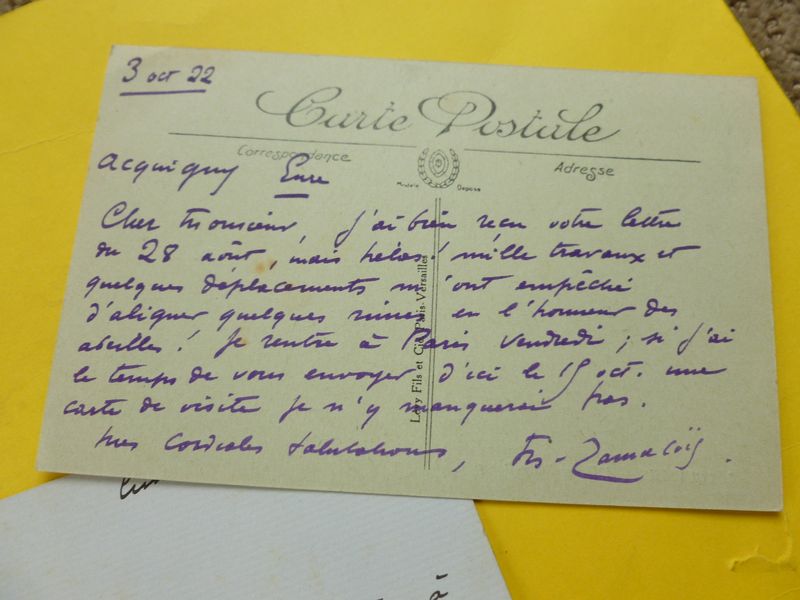 3 oct 22
Carte Postale
Correspondance
Adresse
Modèle Déposé
Acquigny Eure
Cher Monsieur, j'ai bien reçu votre lettre
du 28 août, mais hélas! mille travaux et
quelques déplacements m'ont empêché
d'aligner quelques rimes en l'honneur des
abeilles! Je rentre à Paris vendredi; si j'ai
le temps de vous envoyer d'ici le 15 oct. une
carte de visite je n'y manquerai pas.
Mes cordiales salutations,
Zamacoïs.
Levy Fils et Cie, Paris-Versailles